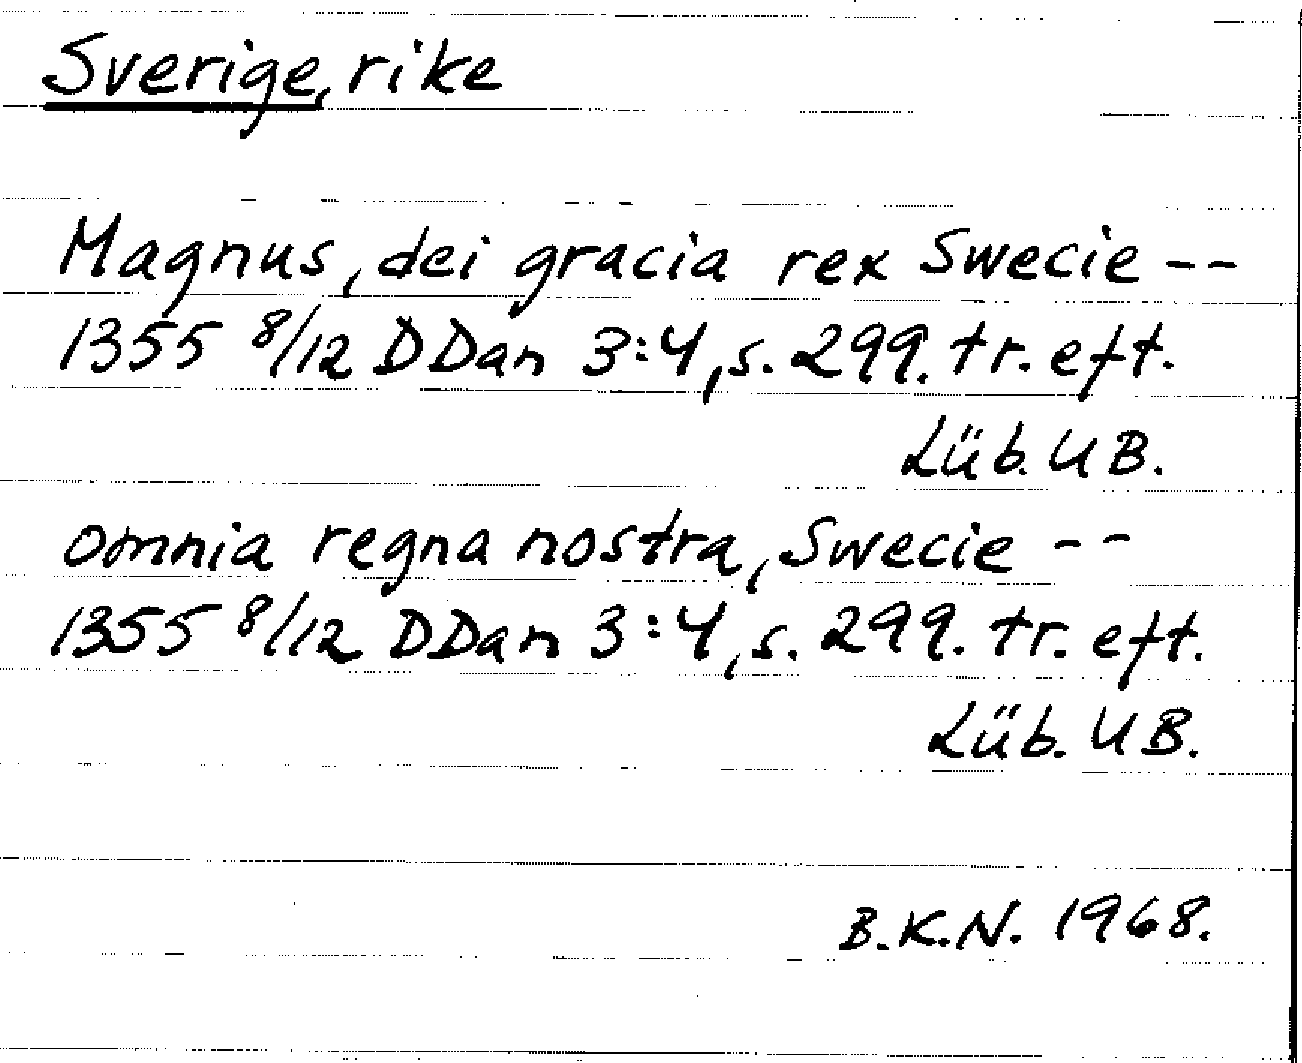 Sverige, rike
Magnus, dei gracia rex Swecie --
1355 8/12 DDan 3:4, s. 299. tr. eft.
Lüb. UB.
omnia regna nostra, Swecie --
1355 8/12 DDan 3:4, s. 299. tr. eft.
Lüb. UB.
B.K.N. 1968.